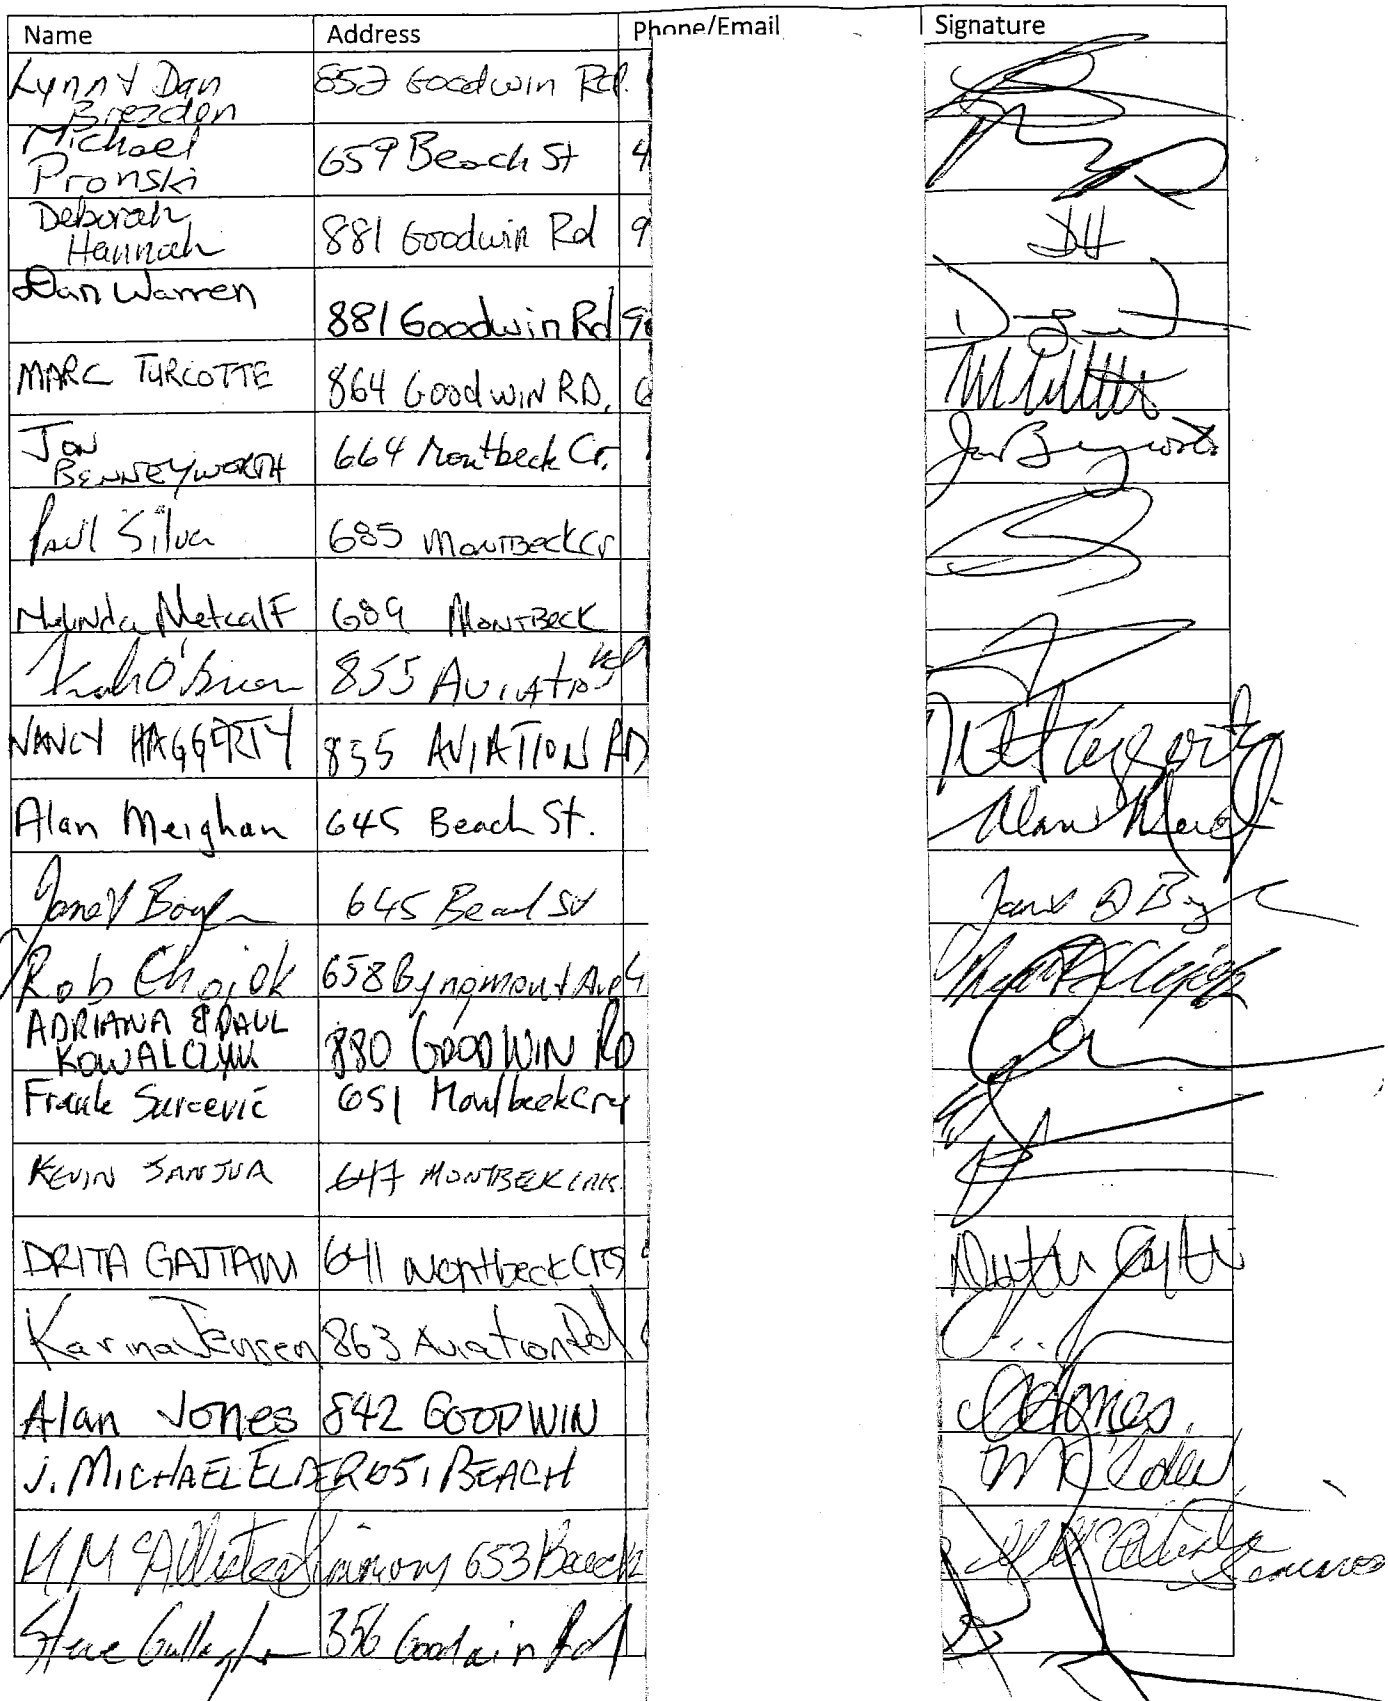 Name Address Phone/Email Signature
Lynn & Dan 852 Goodwin Rd.
Brezden
Michael
Pronski 659 Beach St 4
Deborah
Hannah 881 Goodwin Rd 9 DH
Dan Warren
881 Goodwin Rd 9
MARC TURCOTTE 864 GoodwiN RD.
Jon
BENNEYWORTH 664 Montbeck Cr. Jon Benneyworth
Paul Silva 685 MontBeck Cr
Melinda Metcalf 689 MontBeck
O'Brien 855 Aviation Rd
NANCY HAGGERTY 855 AVIATION RD N Haggerty
Alan Meighan 645 Beach St. Alan
Janet 645 Beach St Janet D
Rob Chojok 658 Byngmount Ave 4
ADRIANA & PAUL
KOWALCZYK 880 GOODWIN RD
Frank Surcevic 651 Montbeck Cres
KEVIN SANJUA 647 MONTBECK CRES.
DRITA GATTANI 641 Montbeck Cres
Karina Jensen 863 Aviation Rd
Alan Jones 842 GOODWIN AJones
J. MICHAEL ELDER 651 BEACH Elder
McAllister Simmons 653 Beach
Steve Gallagher 356 Goodwin Rd